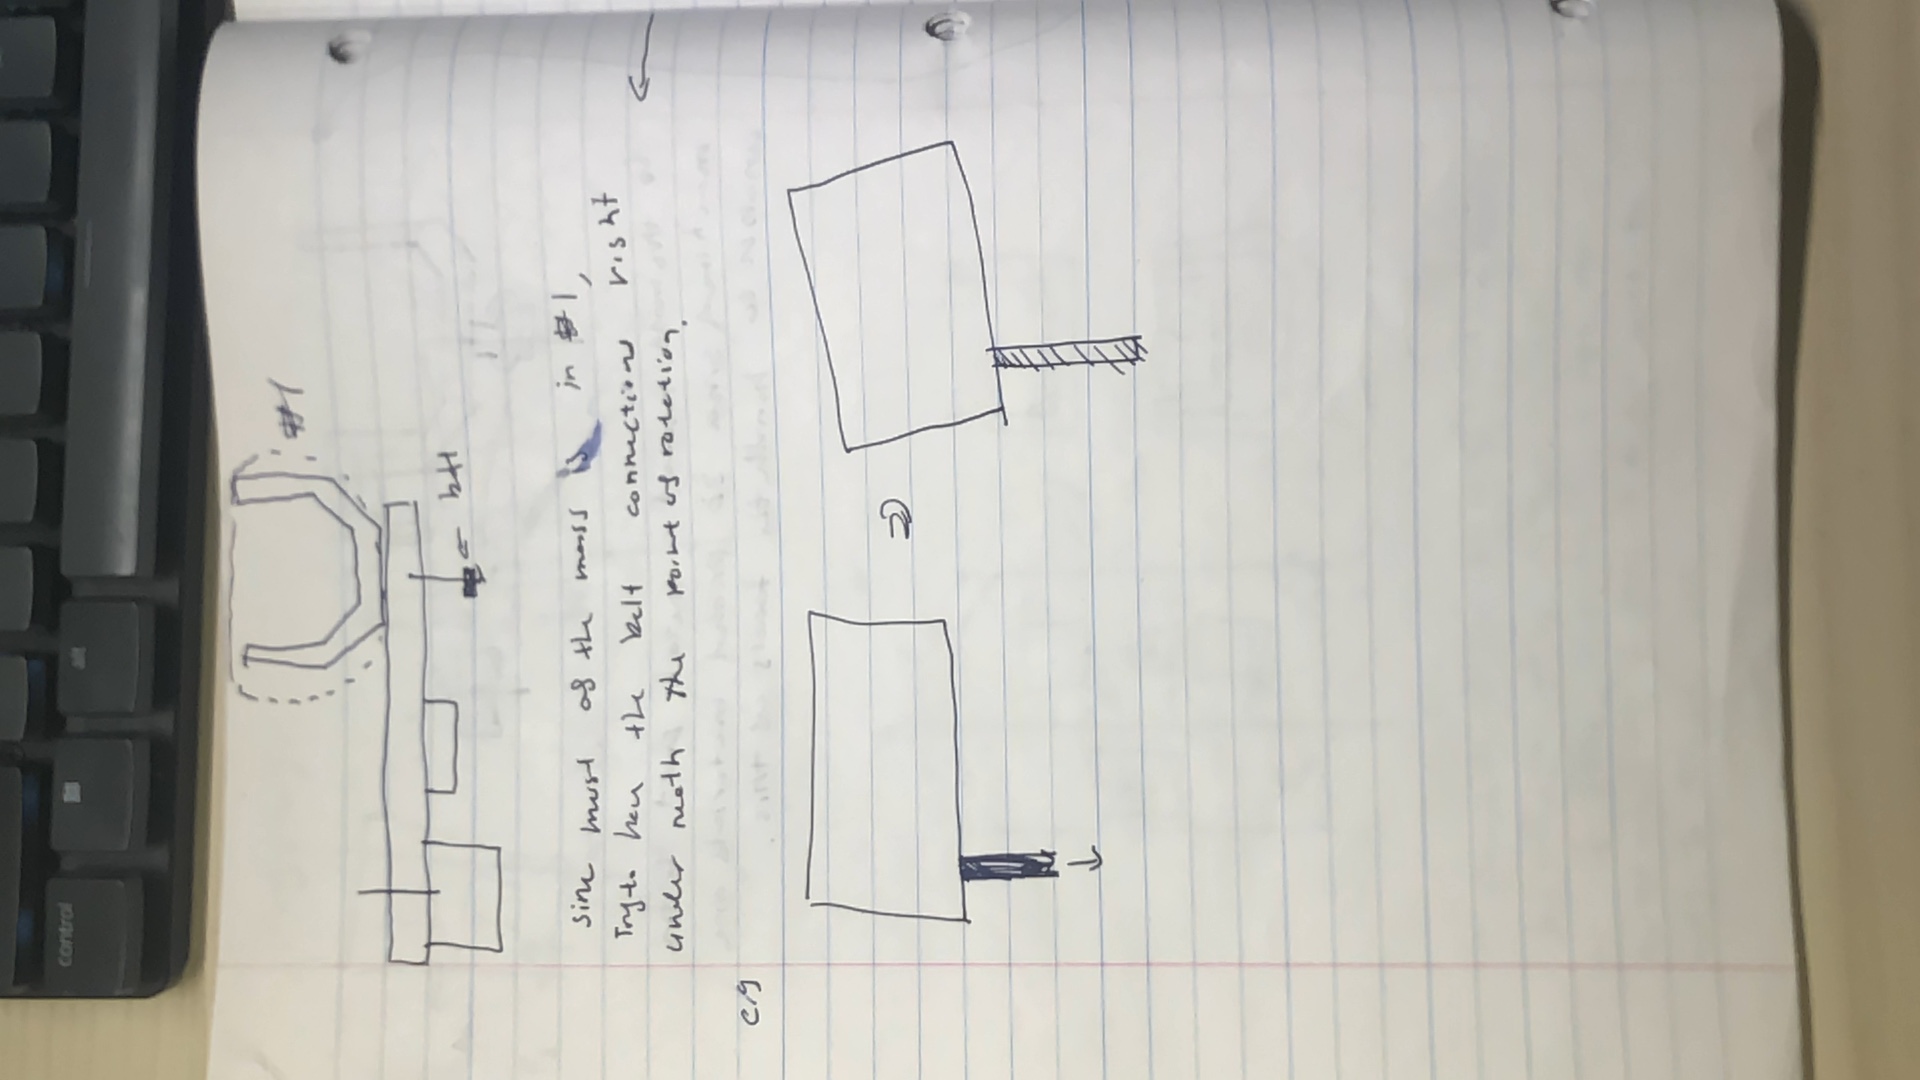 control
alt
#1
belt
since most of the mass is in #1,
Try to have the belt connections right
under neath the point of rotation.
e.g